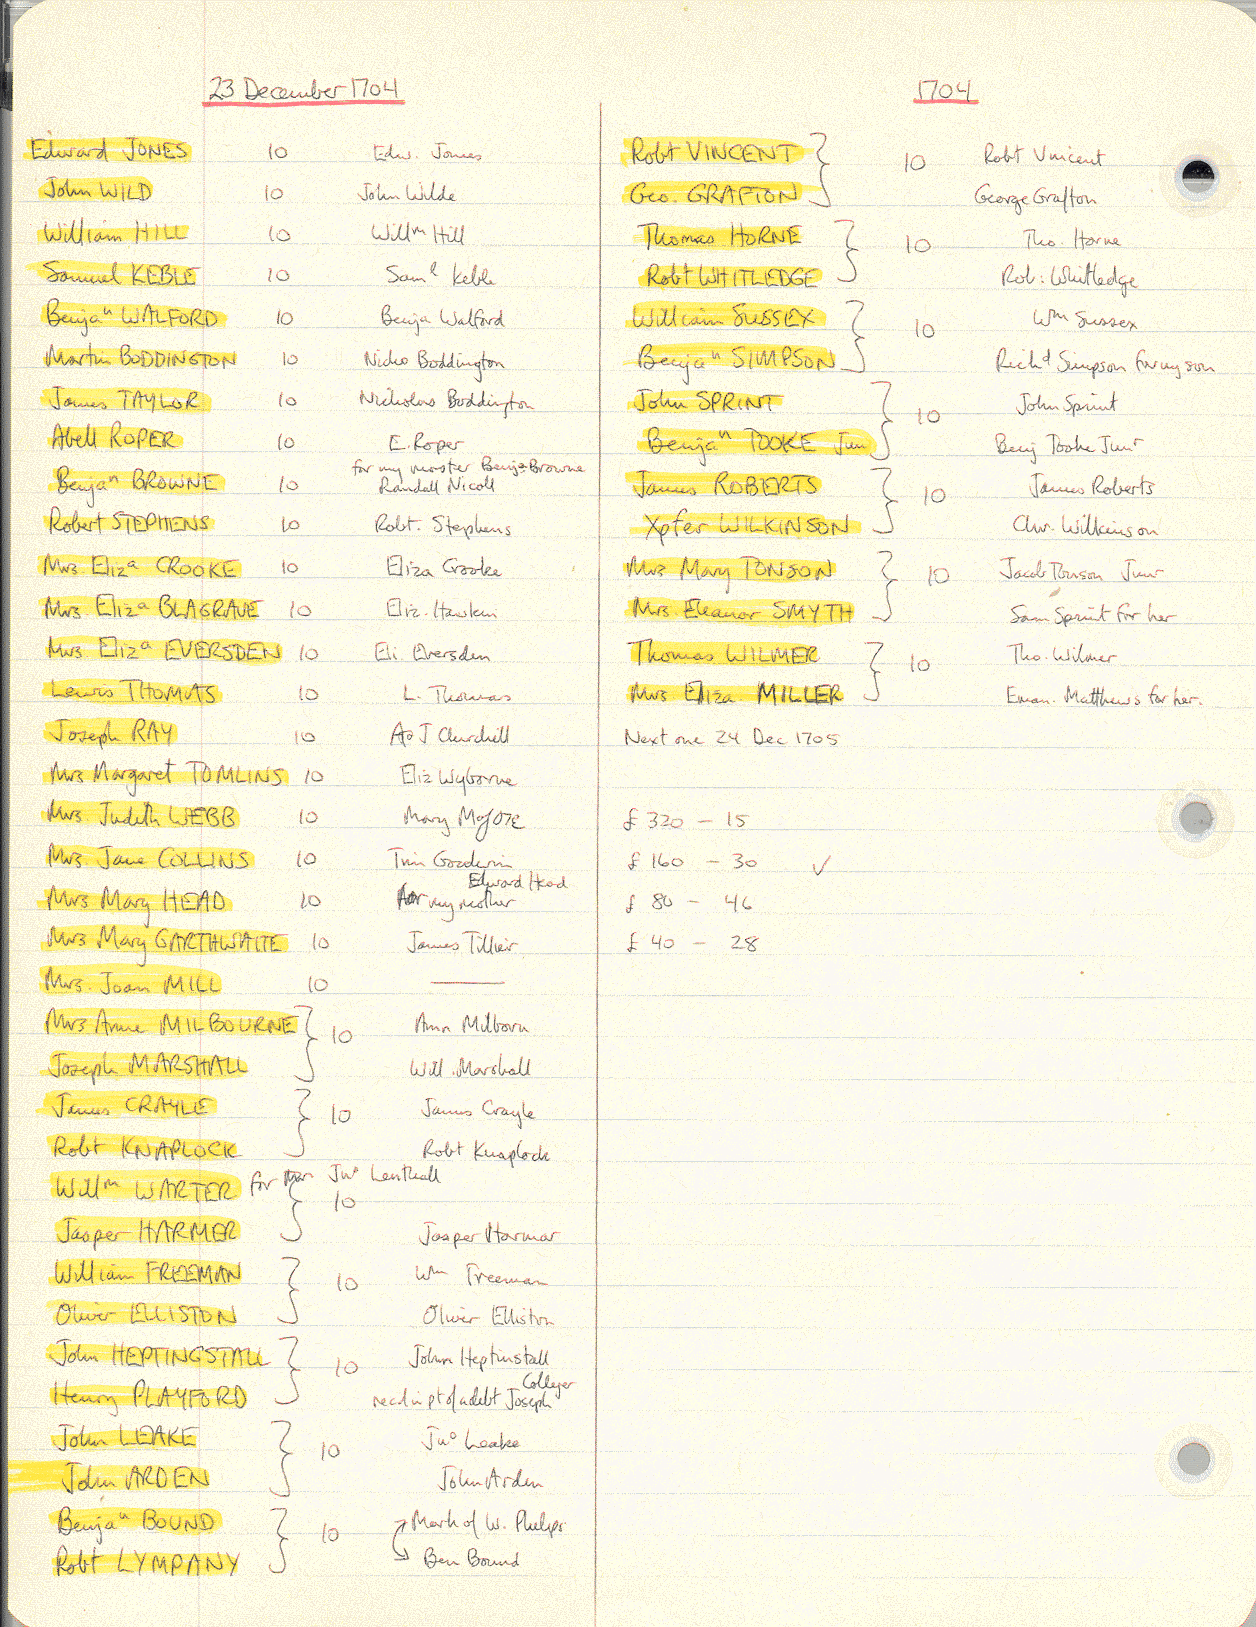 23 December 1704
Edward JONES 10 Edw. Jones
John WILD 10 John Wilde
William HILL 10 Willm Hill
Samuel KEBLE 10 Saml Keble
Benjan WALFORD 10 Benja Walford
Martin BODDINGTON 10 Nicho Boddington
James TAYLOR 10 Nicholas Boddington
Abell ROPER 10 E. Roper
for my master Benja Browne
Benjan BROWNE 10 Randall Nicoll
Robert STEPHENS 10 Robt. Stephens
Mrs. Eliza CROOKE 10 Eliza Crooke
Mrs. Eliza BLAGRAVE 10 Eliz. Hawkin
Mrs. Eliza EVERSDEN 10 Eli. Eversden
Lewis THOMAS 10 L. Thomas
Joseph RAY 10 A & J Churchill
Mrs Margaret TOMLINS 10 Eliz Wyborne
Mrs. Judith WEBB 10 Mary
Mrs. Jane COLLINS 10 Tim Goodwin
Edward Head
Mrs Mary HEAD 10 for my mother
Mrs Mary GARTHWAITE 10 James Tillier
Mrs. Joan MILL 10 ———
Mrs Anne MILBOURNE } 10 Ann Milborn
Joseph MARSHALL Will. Marshall
James CRAYLE } 10 James Crayle
Robt KNAPLOCK Robt Knaplock
Willm WARTER for Jno Lenthall } 10
Jasper HARMER Jasper Harmar
William FREEMAN } 10 Wm Freeman
Oliver ELLISTON Oliver Elliston
John HEPTINGSTALL } 10 John Heptinstall
Colleyer
Henry PLAYFORD recd in pt of a debt Joseph
John LEAKE } 10 Jno Leake
John ARDEN John Arden
Benjan BOUND } 10 Mark of W. Phelips
Robt LYMPANY Ben Bound
1704
Robt VINCENT } 10 Robt Vincent
Geo. GRAFTON George Grafton
Thomas HORNE } 10 Tho. Horne
Robt WHITLEDGE Rob: Whitledge
William SUSSEX } 10 Wm Sussex
Benjan SIMPSON Richd Simpson for my son
John SPRINT } 10 John Sprint
Benjan TOOKE Jun Benj Tooke Junr
James ROBERTS } 10 James Roberts
Xpfer WILKINSON Chr. Wilkinson
Mrs Mary TONSON } 10 Jacob Tonson Junr
Mrs. Eleanor SMYTH Sam Sprint for her
Thomas WILMER } 10 Tho. Wilmer
Mrs Eliza. MILLER Eman. Matthews for her.
Next one 24 Dec 1705
£ 320 - 15
£ 160 - 30 ✓
£ 80 - 46
£ 40 - 28